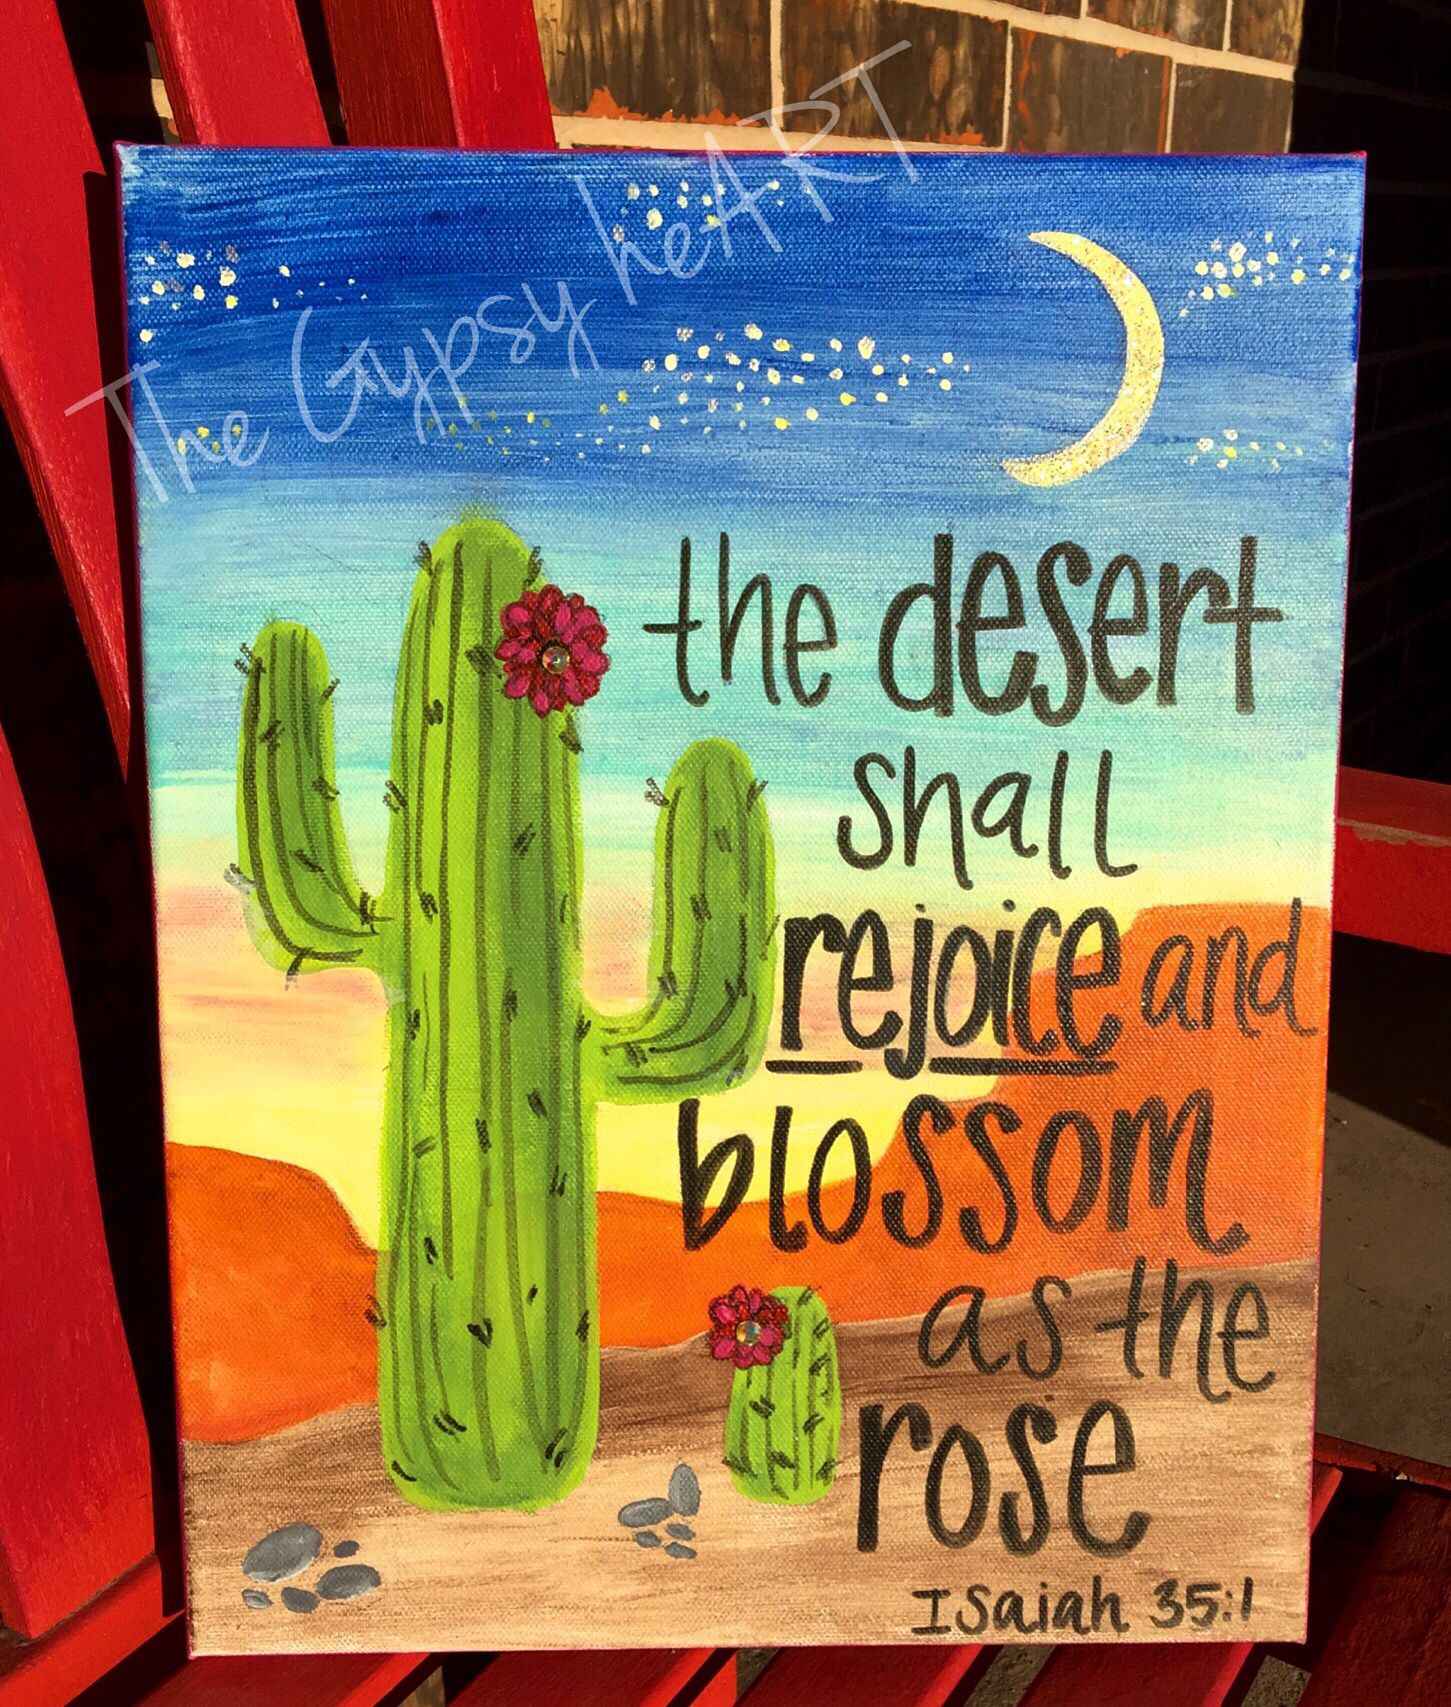 The Gypsy heART
the desert
shall
rejoice and
blossom
as the
rose
Isaiah 35:1